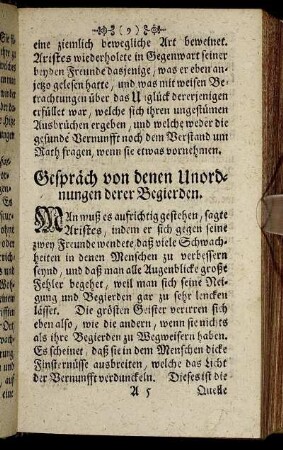 ( 9 )
eine ziemlich bewegliche Art beweinet.
Aristes wiederholete in Gegenwart seiner
beyden Freunde dasjenige, was er eben an-
jetzo gelesen hatte, und was mit weisen Be-
trachtungen über das Unglück dererjenigen
erfüllet war, welche sich ihren ungestümen
Ausbrüchen ergeben, und welche weder die
gesunde Vernunfft noch dem Verstand um
Rath fragen, wenn sie etwas vornehmen.
Gespräch von denen Unord-
nungen derer Begierden.
MAn muß es aufrichtig gestehen, sagte
Aristes, indem er sich gegen seine
zwey Freunde wendete, daß viele Schwach-
heiten in denen Menschen zu verbessern
seynd, und daß man alle Augenblicke große
Fehler begehet, weil man sich seine Nei-
gung und Begierden gar zu sehr lencken
lässet. Die grösten Geister verirren sich
eben also, wie die andern, wenn sie nichts
als ihre Begierden zu Wegweisern haben.
Es scheinet, daß sie in dem Menschen dicke
Finsternüsse ausbreiten, welche das Licht
der Vernunfft verdunckeln. Dieses ist die
A 5 Quelle